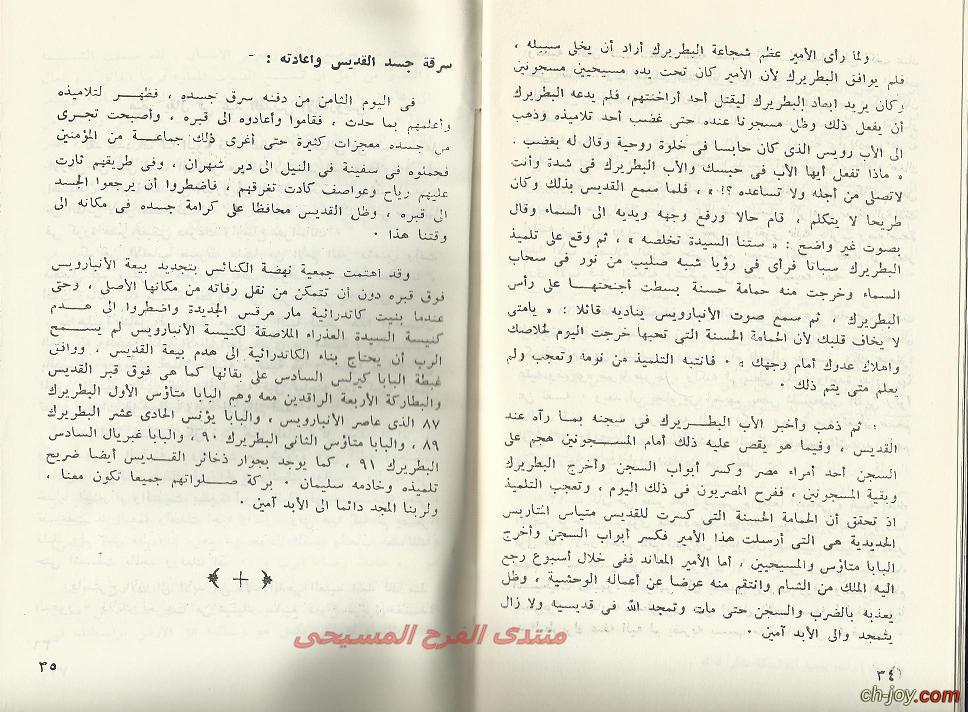 ولما رأى الأمير عظم شجاعة البطريرك أراد أن يخلى سبيله ،
فلم يوافق البطريرك لأن الأمير كان تحت يده مسيحيين مسجونين
وكان يريد ابعاد البطريرك ليقتل أحد أراخنتهم، فلم يدعه البطريرك
أن يفعل ذلك وظل مسجونا عنده حتى غضب أحد تلاميذه وذهب
الى الأب رويس الذى كان حابسا فى خلوة روحية وقال له بغضب .
« ماذا تفعل أيها الأب فى حبسك والأب البطريرك فى شدة وأنت
لاتصلى من أجله ولا تساعده ؟! » ، فلما سمع القديس بذلك وكان
طريحا لا يتكلم ، قام حالا ورفع وجهه ويديه الى السماء وقال
بصوت غير واضح : « ستنا السيدة تخلصه » ، ثم وقع على تلميذ
البطريرك سباتا فرأى فى رؤيا شبه صليب من نور فى سحاب
السماء وخرجت منه حمامة حسنة بسطت أجنحتها على رأس
البطريرك ، ثم سمع صوت الأنبارويس يناديه قائلا : « يامتى
لا يخاف قلبك لأن الحمامة الحسنة التى تحبها خرجت اليوم لخلاصك
واهلاك عدوك أمام وجهك » . فانتبه التلميذ من نومه وتعجب ولم
يعلم متى يتم ذلك .
ثم ذهب وأخبر الأب البطريرك فى سجنه بما رآه عند
القديس ، وفيما هو يقص عليه ذلك أمام المسجونين هجم على
السجن أحد أمراء مصر وكسر أبواب السجن وأخرج البطريرك
وبقية المسجونين ، ففرح المصريون فى ذلك اليوم ، وتعجب التلميذ
اذ تحقق أن الحمامة الحسنة التى كسرت للقديس متياس المتاريس
الحديدية هى التى أرسلت هذا الأمير فكسر أبواب السجن وأخرج
البابا متاؤس والمسيحيين ، أما الأمير المعاند ففى خلال أسبوع رجع
اليه الملك من الشام وانتقم منه عوضا عن أعماله الوحشية ، وظل
يعذبه بالضرب والسجن حتى مات وتمجد الله فى قديسيه ولا زال
يتمجد والى الأبد آمين .
٣٤
سرقة جسد القديس واعادته : -
فى اليوم الثامن من دفنه سرق جسده ، فظهر لتلاميذه
وأعلمهم بما حدث ، فقاموا وأعادوه الى قبره ، وأصبحت تجرى
من جسده معجزات كثيرة حتى أغرى ذلك جماعة من المؤمنين
فحملوه فى سفينة فى النيل الى دير شهران ، وفى طريقهم ثارت
عليهم رياح وعواصف كادت تغرقهم ، فاضطروا أن يرجعوا الجسد
الى قبره ، وظل القديس محافظا على كرامة جسده فى مكانه الى
وقتنا هذا .
وقد اهتمت جمعية نهضة الكنائس بتجديد بيعة الأنبارويس
فوق قبره دون أن تتمكن من نقل رفاته من مكانها الأصلى ، وحتى
عندما بنيت كاتدرائية مار مرقس الجديدة واضطروا الى هدم
كنيسة السيدة العذراء الملاصقة لكنيسة الأنبارويس لم يسمح
الرب أن يحتاج بناء الكاتدرائية الى هدم بيعة القديس ، ووافق
غبطة البابا كيرلس السادس على بقائها كما هى فوق قبر القديس
والبطاركة الأربعة الراقدين معه وهم البابا متاؤس الأول البطريرك
٨٧ الذى عاصر الأنبارويس ، والبابا يؤنس الحادى عشر البطريرك
٨٩ ، والبابا متاؤس الثانى البطريرك ٩٠ ، والبابا غبريال السادس
البطريرك ٩١ ، كما يوجد بجوار ذخائر القديس أيضا ضريح
تلميذه وخادمه سليمان . بركة صلواتهم جميعا تكون معنا ،
ولربنا المجد دائما الى الأبد آمين .
٣٥
منتدى الفرح المسيحى
ch-joy.com